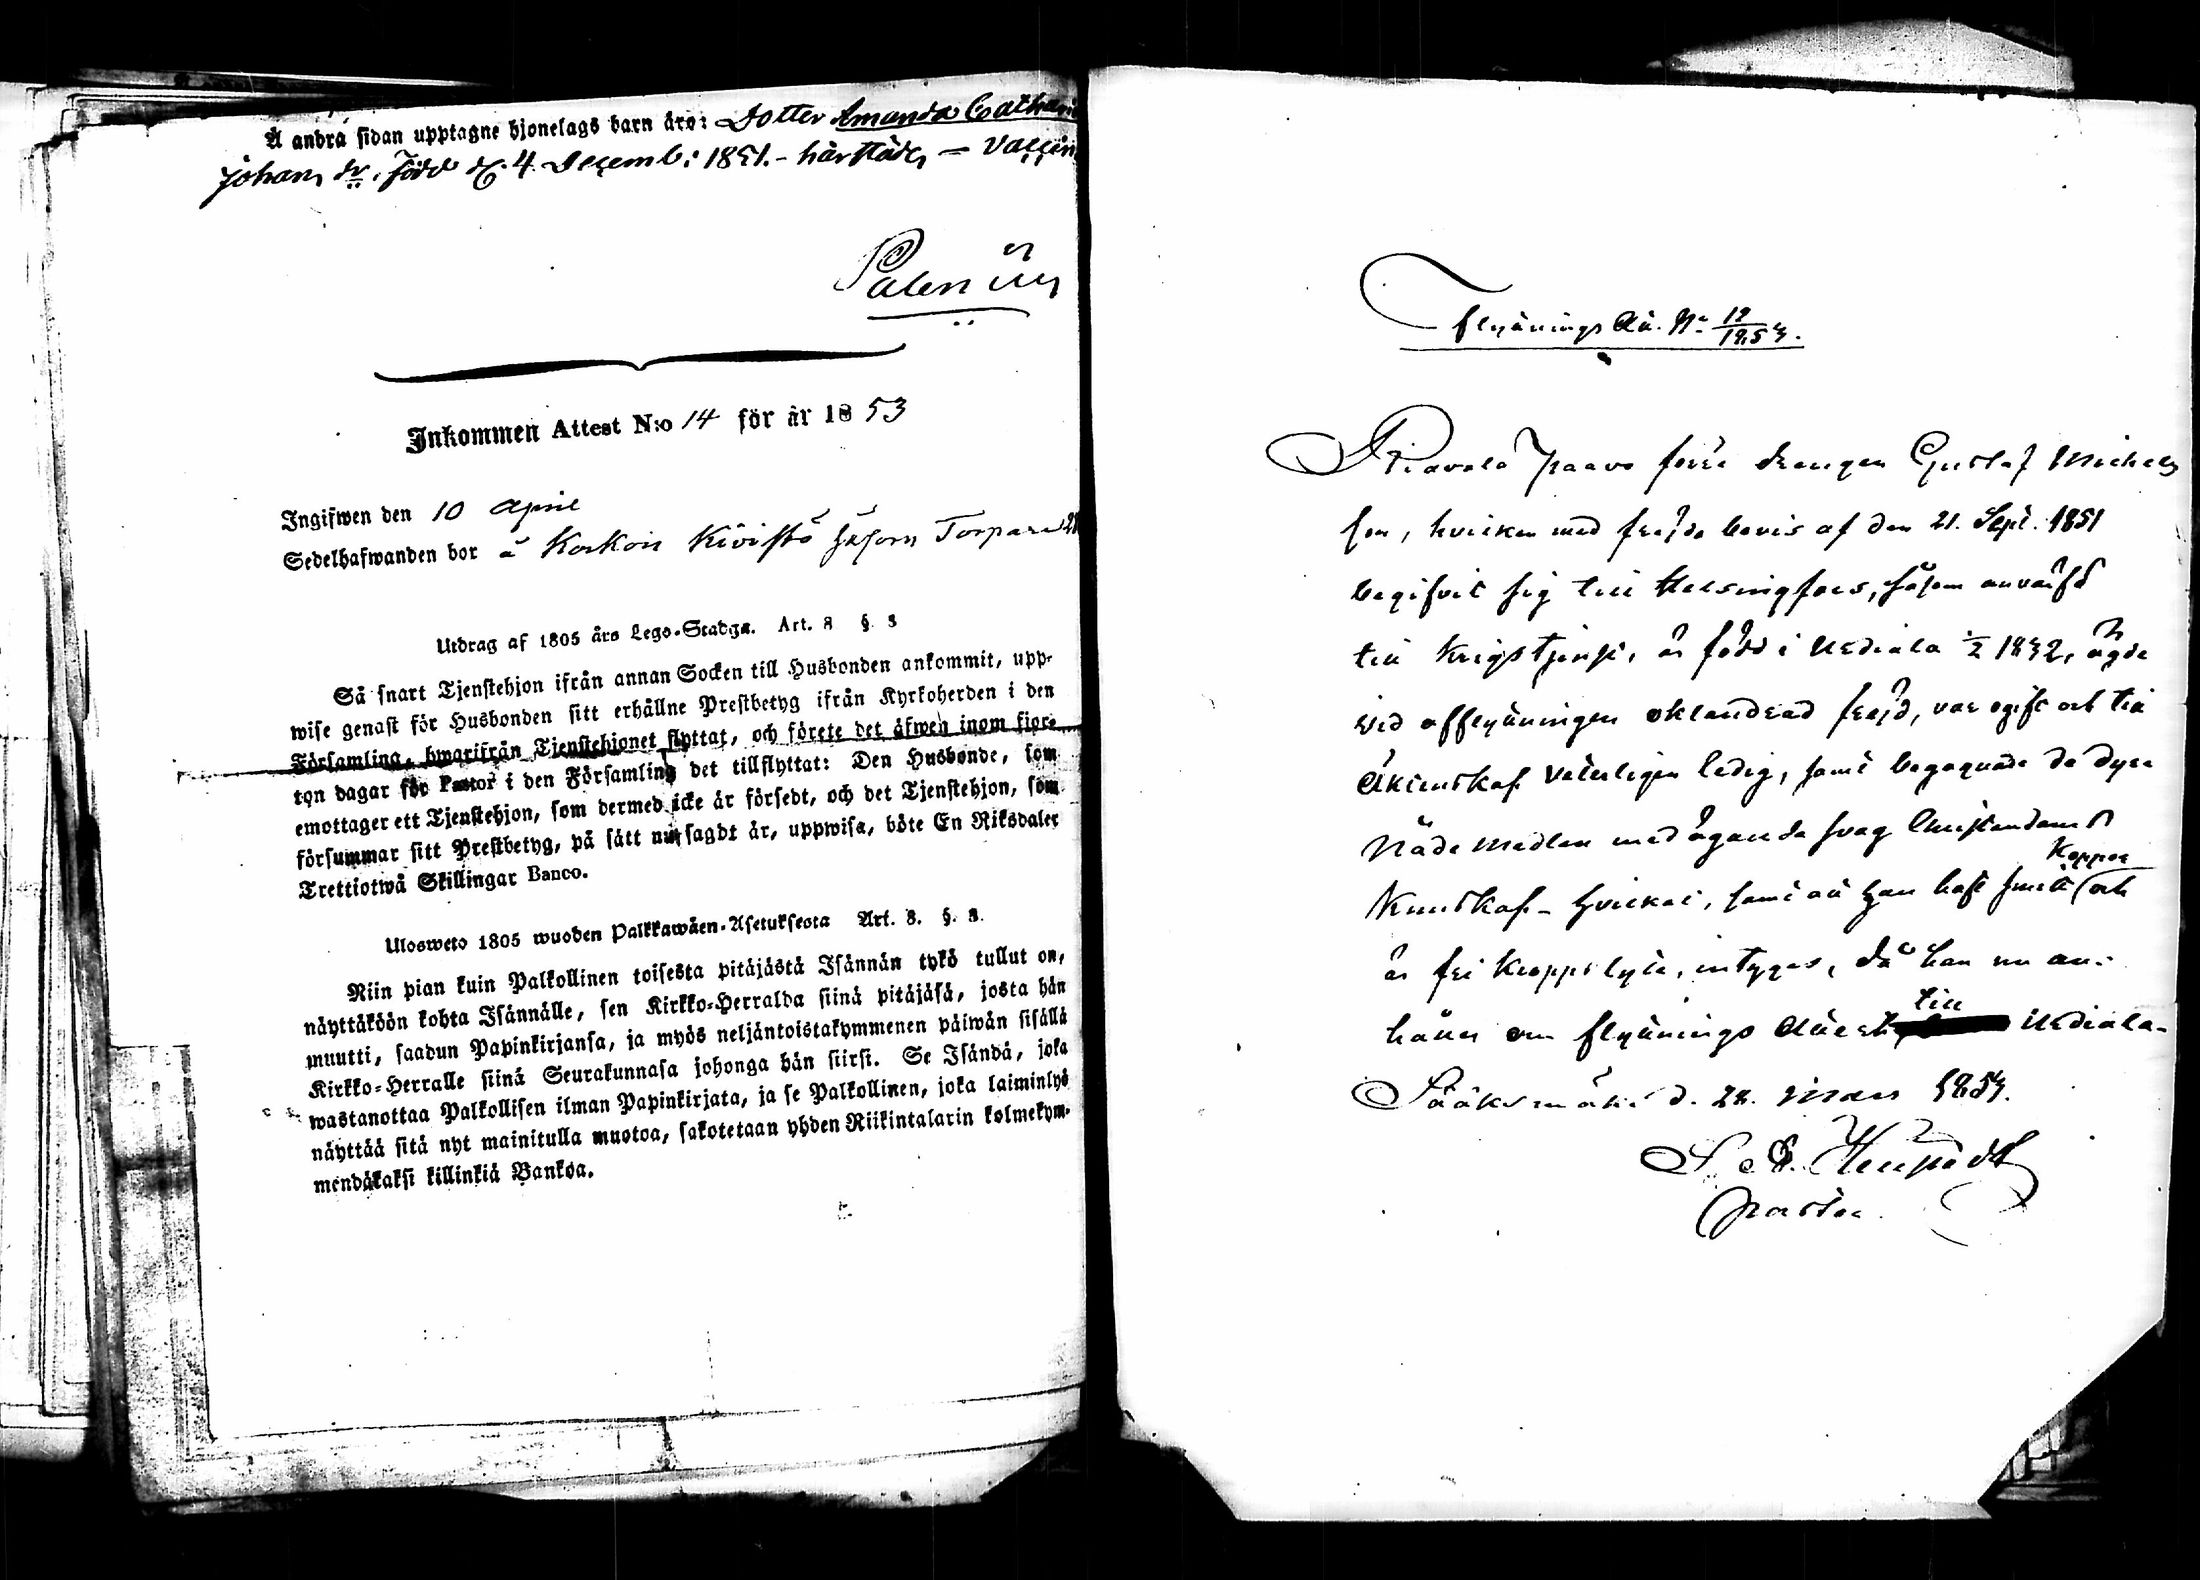 Å andra sidan upptagne hjonelags barn äro: Dotter Amanda Cathari
Johans dr. född d. 4 Decemb: 1851. - härstädes - Vaccin
Palen
Inkommen Attest N:o 14 för år 1853
Ingifwen den 10 April
Sedelhafwanden bor å Korkon Kivistö såsom Torpare
Utdrag af 1805 års Lego-Stadga. Art. 8 § 3
Så snart Tjenstehjon ifrån annan Socken till Husbonden ankommit, upp-
wise genast för Husbonden sitt erhållne Prestbetyg ifrån Kyrkoherden i den
Församling, hwarifrån Tjenstehjonet flyttat, och förete det äfwen inom fjor-
ton dagar för Pastor i den Församling det tillflyttat: Den Husbonde, som
emottager ett Tjenstehjon, som dermed icke är försedt, och det Tjenstehjon, som
försummar sitt Prestbetyg, på sätt nu sagdt är, uppwisa, böte En Riksdaler
Trettiotwå Skillingar Banco.
Ulosweto 1805 wuoden Palkkawäen-Asetuksesta Art. 8. §. 3.
Niin pian kuin Palkollinen toisesta pitäjästä Isännän tykö tullut on,
näyttäköön kohta Isännälle, sen Kirkko-Herralda siinä pitäjäsä, josta hän
muutti, saadun Papinkirjansa, ja myös neljäntoistakymmenen päiwän sisällä
Kirkko-Herralle siinä Seurakunnasa johonga hän siirsi. Se Isändä, joka
wastanottaa Palkollisen ilman Papinkirjata, ja se Palkollinen, joka laiminlyö
näyttää sitä nyt mainitulla muotoa, sakotetaan yhden Riikintalarin kolmekym-
mendäkaksi killinkiä Bankoa.
Flyttnings Att. N:o 12/1854.
Paavo förre drängen Gustaf Michels
son, hvilken med frejde bevis af den 21. Sept. 1851
begifvit sig till Helsingfors, såsom antvärfd
till Krigstjenst, är född i Urdiala 1/2 1832, ägde
vid afflyttningen oklandrad frejd, var ogift och till
Äktenskap veterligen ledig, samt begagnade de dyra
Nåde medlen med ägande svag Christendoms
Kunskap - hvilket, samt att han haft smitt koppor och
är fri kroppslyte, intygas, då han nu an-
håller om flyttnings Attest till Urdiala.
Sääksmäki d. 28. Mars 1854.
Pastor.